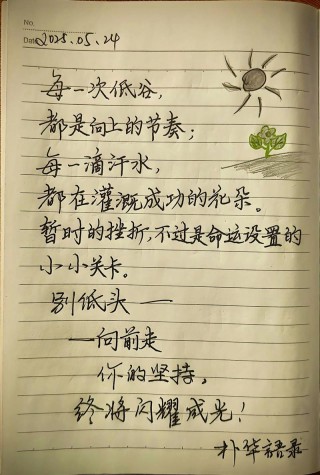 No.
Date 2025.05.24
每一次低谷,
都是向上的节奏;
每一滴汗水,
都在灌溉成功的花朵。
暂时的挫折,不过是命运设置的
小小关卡。
别低头 —
一向前走
你的坚持,
终将闪耀成光!
朴华语录